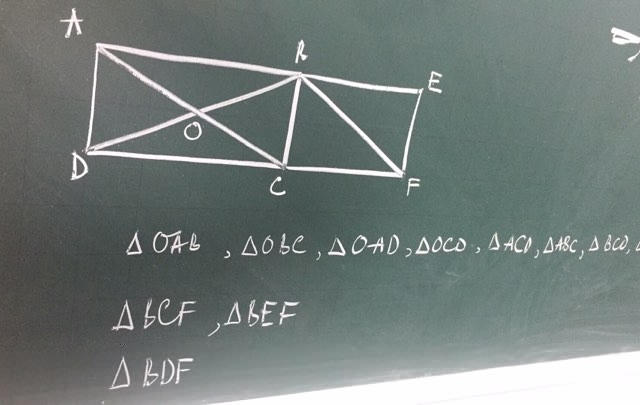 A
B
E
O
D
C
F
Δ OAB , Δ OBC , Δ OAD , Δ OCD , Δ ACD , Δ ABC , Δ BCD ,
Δ BCF , Δ BEF
Δ BDF